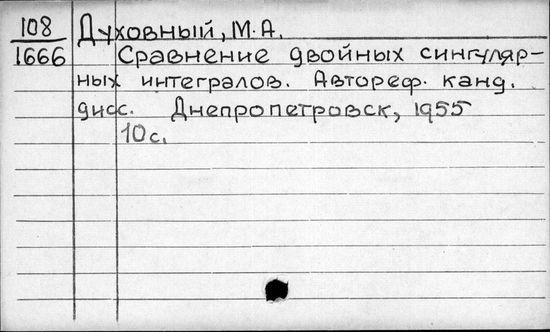 108 Духовный, М.А.
1666 Сравнение двойных сингуляр-
ных интегралов. Автореф. канд.
дисс. Днепропетровск, 1955
10 с.